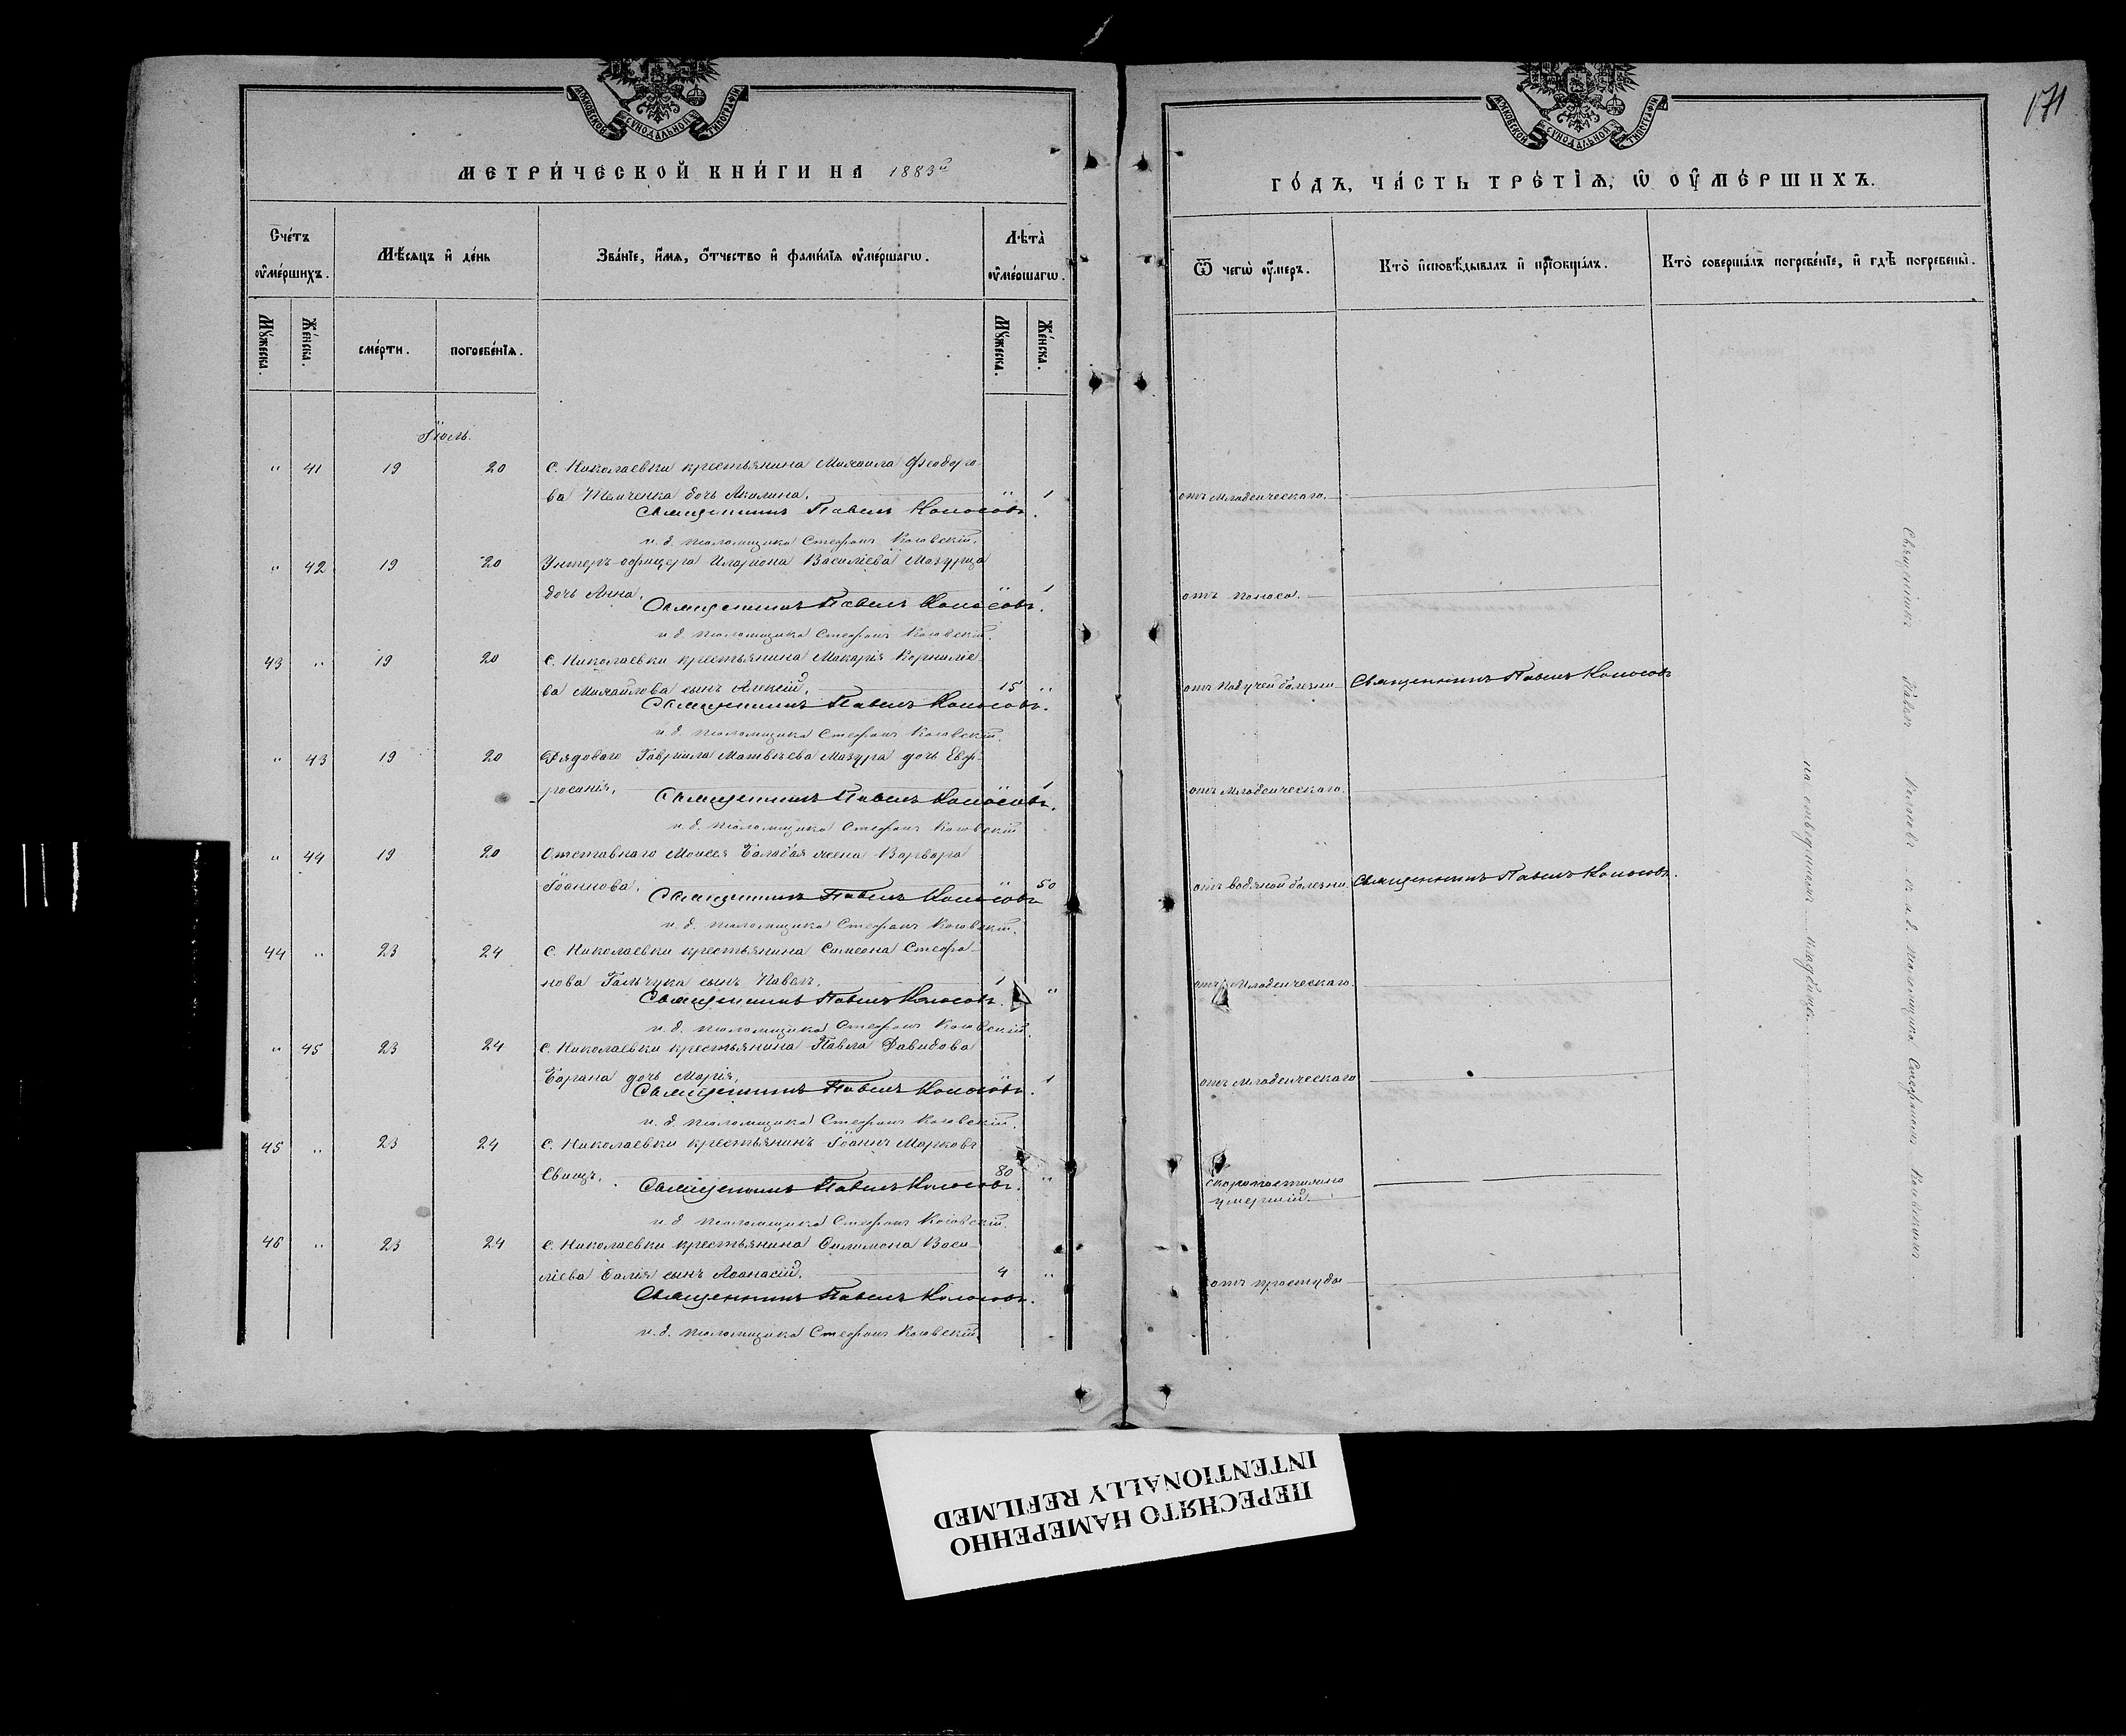 МОСКОВСКОЙ СѴНОДАЛЬНОЙ ТИПОГРАФІИ
МЕТРИ́ЧЕСКОЙ КНИ́ГИ НА 1883й
Сче́тъ ᲂу҆ме́ршихъ.
Мѣ́сяцъ и҆ де́нь
Зва́нїе, и҆́мя, ѻ҆́тчество и҆ фами́лїя ᲂу҆ме́ршагѡ.
Лѣта̀ ᲂу҆ме́ршагѡ.
Мꙋ́жеска.
Же́нска.
сме́рти.
погребе́нїя.
Мꙋ́жеска.
Же́нска.
Іюль.
" 41 19 20 С. Николаевки крестьянина Михаила Феодоро-
ва Темченка дочь Акилина. " 1
Священникъ Павелъ Колосовъ.
и. д. псаломщика Стефанъ Коговскій.
" 42 19 20 Унтеръ-офицера Иларіона Василіева Мазурца
дочь Анна. " 1
Священникъ Павелъ Колосовъ.
и. д. псаломщика Стефанъ Коговскій.
43 " 19 20 С. Николаевки крестьянина Макарія Корниліе-
ва Михайлова сынъ Алексій. 15 "
Священникъ Павелъ Колосовъ.
и. д. псаломщика Стефанъ Коговскій.
" 43 19 20 Рядоваго Гавріила Матвѣева Мазура дочь Евф-
росинія. " 1
Священникъ Павелъ Колосовъ.
и. д. псаломщика Стефанъ Коговскій
" 44 19 20 Отставнаго Моисея Балабая жена Варвара
Іоаннова. " 50
Священникъ Павелъ Колосовъ
и. д. псаломщика Стефанъ Коговскій.
44 " 23 24 С. Николаевки крестьянина Симеона Стефа-
нова Гальчука сынъ Павелъ. 1 "
Священникъ Павелъ Колосовъ.
и. д. псаломщика Стефанъ Коговскій.
" 45 23 24 С. Николаевки крестьянина Павла Давидова
Борана дочь Марія. " 1
Священникъ Павелъ Колосовъ.
и. д. псаломщика Стефанъ Коговскій.
45 " 23 24 С. Николаевки крестьянинъ Іоаннъ Марковъ
Свищъ. 80 "
Священникъ Павелъ Колосовъ.
и. д. псаломщика Стефанъ Коговскій.
46 " 23 24 С. Николаевки крестьянина Филимона Васи-
ліева Балія сынъ Аѳанасій. 4 "
Священникъ Павелъ Колосовъ.
и. д. псаломщика Стефанъ Коговскій.
171
МОСКОВСКОЙ СѴНОДАЛЬНОЙ ТИПОГРАФІИ
ГО́ДЪ, ЧА́СТЬ ТРЕ́ТІѦ, Ѡ҆ ОУ҆МЕ́РШИХЪ.
Ѿ чегѡ̀ ᲂу҆́меръ.
Кто̀ и҆сповѣ́дывалъ и҆ прїѡбща́лъ.
Кто̀ соверша́лъ погребе́нїе, и҆ гдѣ̀ погребены̀.
отъ младенческаго.
отъ поноса.
отъ падучей болезни Священникъ Павелъ Колосовъ
отъ младенческаго.
отъ водяной болезни. Священникъ Павелъ Колосовъ.
отъ младенческаго.
отъ младенческаго
скоропостижно
умершій.
отъ простуды
Священникъ Павелъ Колосовъ съ и. д. псаломщика Стефаномъ Коговскимъ
на кладбищѣ.
ПЕРЕСНЯТО НАМЕРЕННО
INTENTIONALLY REFILMED